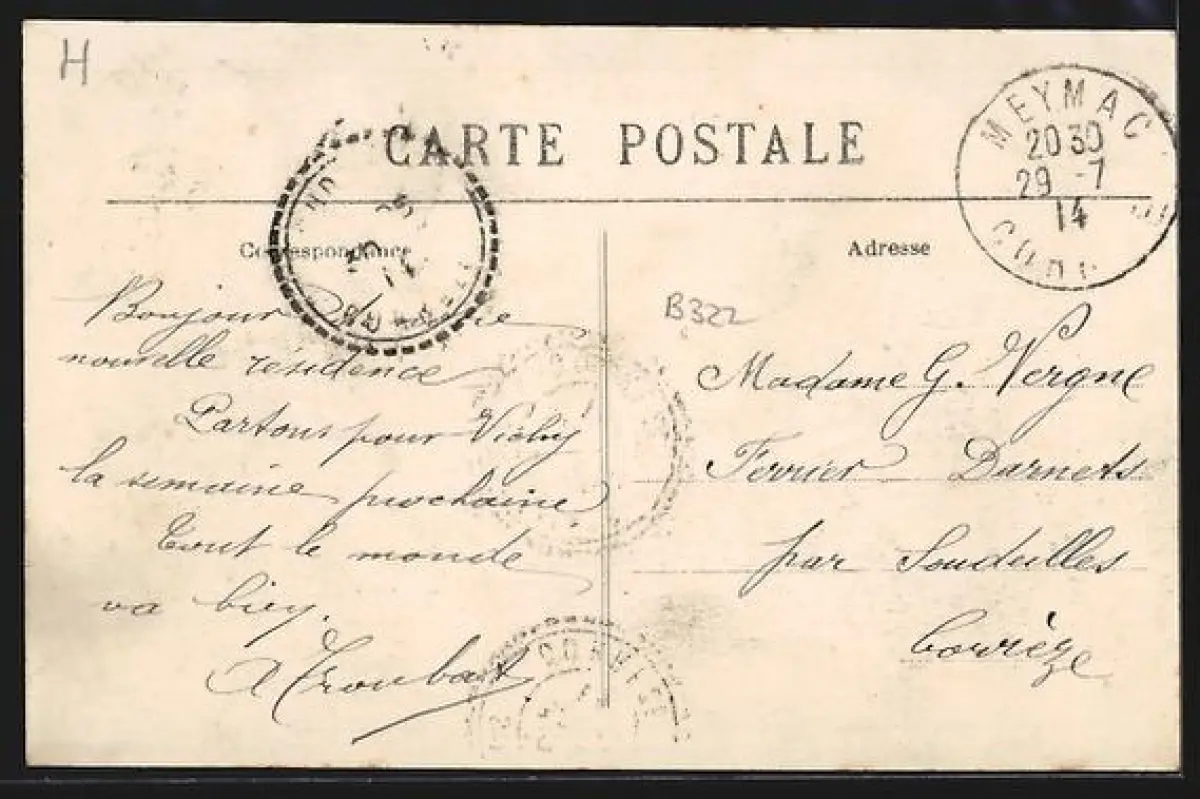 H
CARTE POSTALE
MEYMAC
20 30
29 -7
14
Correspondance
Adresse
B322
Bonjour
nouvelle résidence
Partons pour Vichy
la semaine prochaine
Tout le monde
va bien.
Madame G. Vergne
Darnets
par Soudeilles
Corrèze